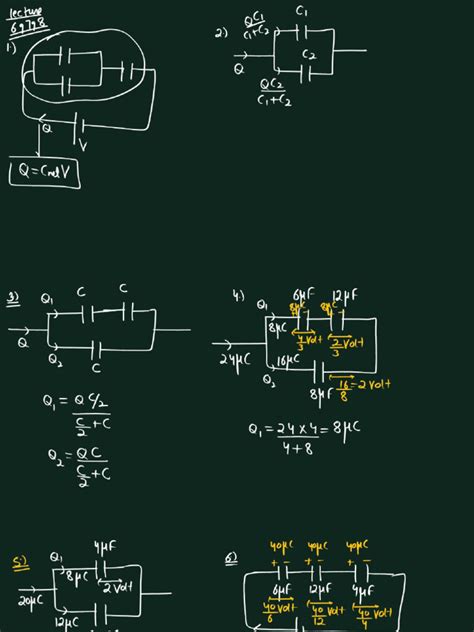 lecture
69798
1.)
Q
V
Q = CnetV
2)
QC1/C1+C2
C1
Q
C2
QC2/C1+C2
3)
C C
Q1
Q
Q2
C
Q1 = Q C/2 / C/2 + C
Q2 = QC / C/2 + C
4.)
6μF 12μF
Q1 8μC 8μC
8μC
+ - + -
4/3 Volt 2/3 Volt
24μC
16μC
Q2
8μF
16/8 = 2 Volt
Q1 = 24 x 4 / 4 + 8 = 8μC
5.)
4μF
Q1
8μC
2 Volt
20μC
12μC
6)
40μC 40μC 40μC
+ - + - + -
6μF 12μF 4μF
40/6 Volt 40/12 Volt 40/4 Volt